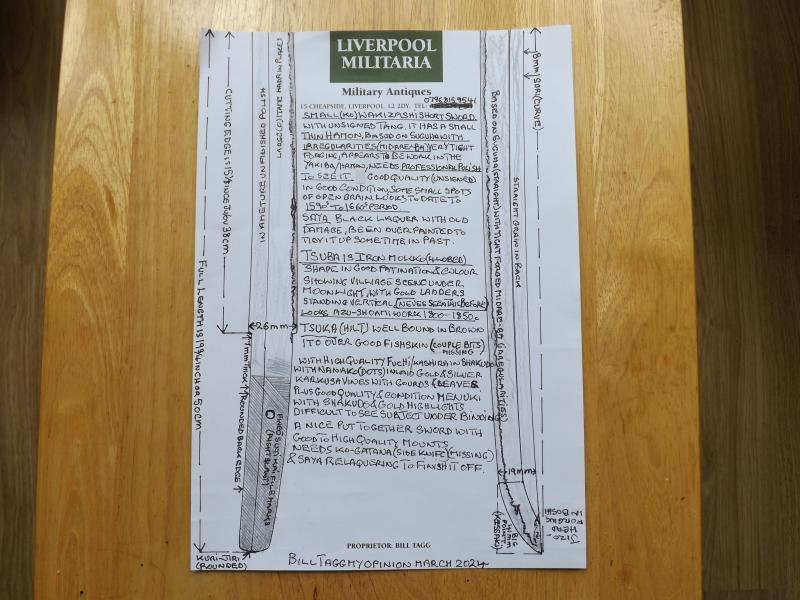 LIVERPOOL
MILITARIA
Military Antiques
15 CHEAPSIDE, LIVERPOOL. L2 2DY. TEL:
07968159541
SMALL (KO) WAKIZASHI SHORT SWORD
WITH UNSIGNED TANG, IT HAS A SMALL
THIN HAMON, BASED ON SUGUHA WITH
IRREGULARITIES (MIDARE-BA) VERY TIGHT
FORGING, APPEARS TO BE WORK IN THE
YAKIBA/HAMON, NEEDS PROFESSIONAL POLISH
TO SEE IT. GOOD QUALITY (UNSIGNED)
IN GOOD CONDITION, SOME SMALL SPOTS
OF OPEN GRAIN. LOOKS TO DATE TO
1590s TO 1660s PERIOD
SAYA BLACK LAQUER WITH OLD
DAMAGE, BEEN OVER PAINTED TO
TIDY IT UP SOMETIME IN PAST.
TSUBA IS IRON MOKKO (4 LOBED)
SHAPE IN GOOD PATINATION & COLOUR
SHOWING VILLAGE SCENE UNDER
MOONLIGHT, WITH GOLD LADDERS
STANDING VERTICAL, (NEVER SEEN THIS BEFORE)
LOOKS AZU-SHOAMI WORK 1800-1850s
TSUKA (HILT) WELL BOUND IN BROWN
ITO OVER GOOD FISHSKIN (COUPLE BITS MISSING)
WITH HIGH QUALITY FUCHI/KASHIRA IN SHAKUDO
WITH NANAKO (DOTS) INLAID GOLD & SILVER
KARKUSA VINES WITH GOURDS & LEAVES
PLUS GOOD QUALITY & CONDITION MENUKI
WITH SHAKUDO & GOLD HIGHLIGHTS
DIFFICULT TO SEE SUBJECT UNDER BINDING
A NICE PUT TOGETHER SWORD WITH
GOOD TO HIGH QUALITY MOUNTS
NEEDS KO-GATANA (SIDE KNIFE) (MISSING)
& SAYA RELAQUERING TO FINISH IT OFF.
PROPRIETOR: BILL TAGG
BILL TAGG MY OPINION MARCH 2024
FULL LENGTH IS 19¾ INCH OR 50CM
CUTTING EDGE IS 15 INCH 38CM
7MM THICK
ROUNDED BACK EDGE
KURI-JIRI
(ROUNDED)
26mm
ITAME HADA IN PLACES
FILE MARKS
8mm SORI (CURVE)
STRAIGHT GRAIN IN BACK
BASED ON SUGUHA (STRAIGHT) WITH TIGHT FORGED MIDARE-BA (IRREGULARITIES)
19mm
(KISSAKI)
JIZO
HEAD
FORGING
IN BOSHI